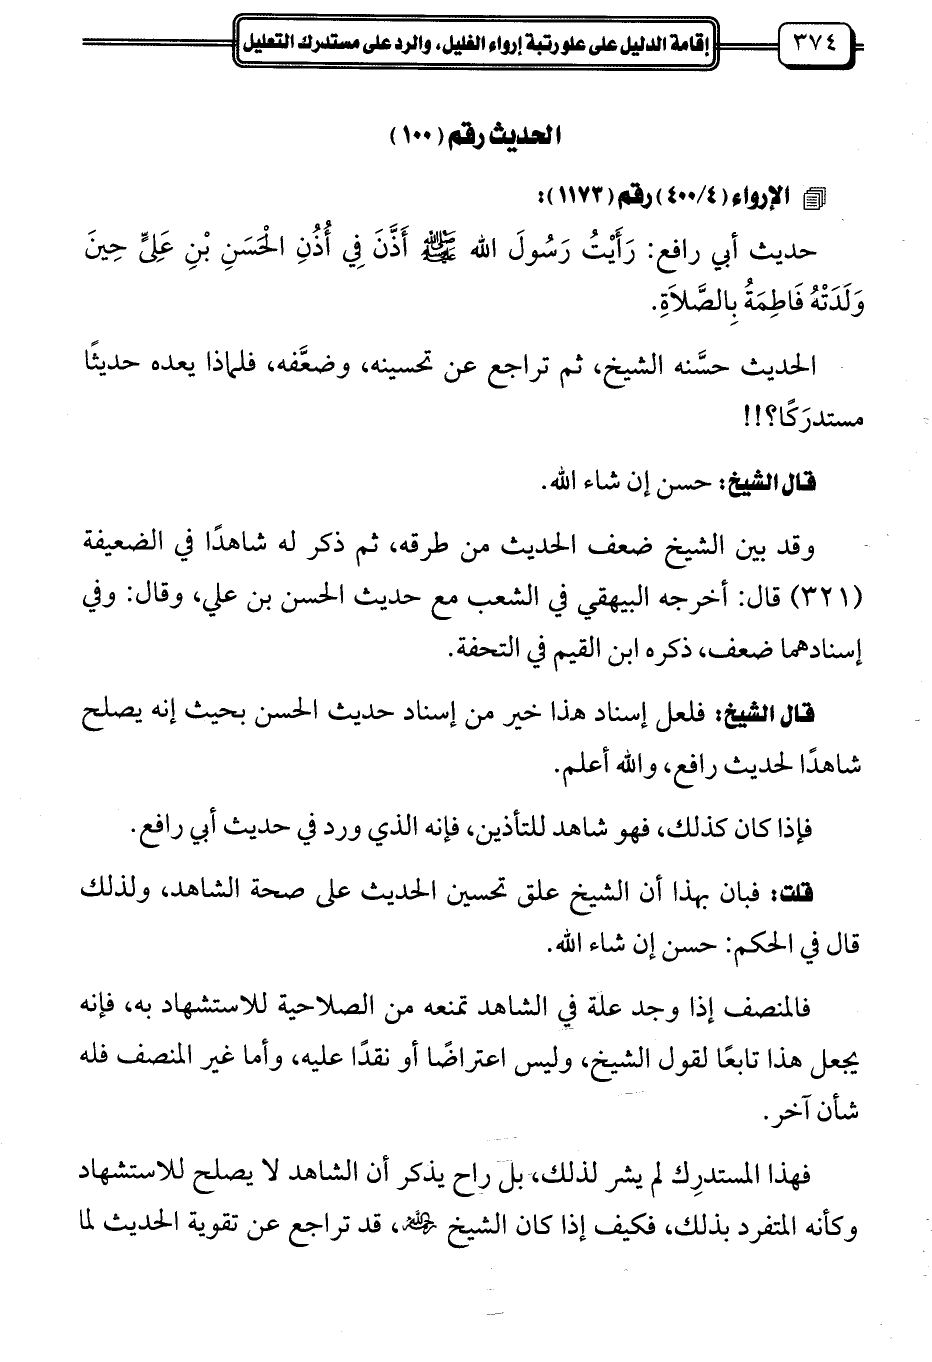 ٣٧٤
إقامة الدليل على علو رتبة إرواء الغليل، والرد على مستدرك التعليل
الحديث رقم (١٠٠)
الإرواء (٤/ ٤٠٠) رقم (١١٧٣):
حديث أبي رافع: رَأَيْتُ رَسُولَ الله ﷺ أَذَّنَ فِي أُذُنِ الْحَسَنِ بْنِ عَلِيٍّ حِينَ
وَلَدَتْهُ فَاطِمَةُ بِالصَّلاَةِ.
الحديث حسَّنه الشيخ، ثم تراجع عن تحسينه، وضعَّفه، فلماذا يعده حديثًا
مستدرَكًا؟!!
قال الشيخ: حسن إن شاء الله.
وقد بين الشيخ ضعف الحديث من طرقه، ثم ذكر له شاهدًا في الضعيفة
(٣٢١) قال: أخرجه البيهقي في الشعب مع حديث الحسن بن علي، وقال: وفي
إسنادهما ضعف، ذكره ابن القيم في التحفة.
قال الشيخ: فلعل إسناد هذا خير من إسناد حديث الحسن بحيث إنه يصلح
شاهدًا لحديث رافع، والله أعلم.
فإذا كان كذلك، فهو شاهد للتأذين، فإنه الذي ورد في حديث أبي رافع.
قلت: فبان بهذا أن الشيخ علق تحسين الحديث على صحة الشاهد، ولذلك
قال في الحكم: حسن إن شاء الله.
فالمنصف إذا وجد علة في الشاهد تمنعه من الصلاحية للاستشهاد به، فإنه
يجعل هذا تابعًا لقول الشيخ، وليس اعتراضًا أو نقدًا عليه، وأما غير المنصف فله
شأن آخر.
فهذا المستدرِك لم يشر لذلك، بل راح يذكر أن الشاهد لا يصلح للاستشهاد
وكأنه المتفرد بذلك، فكيف إذا كان الشيخ رحمه الله، قد تراجع عن تقوية الحديث لما